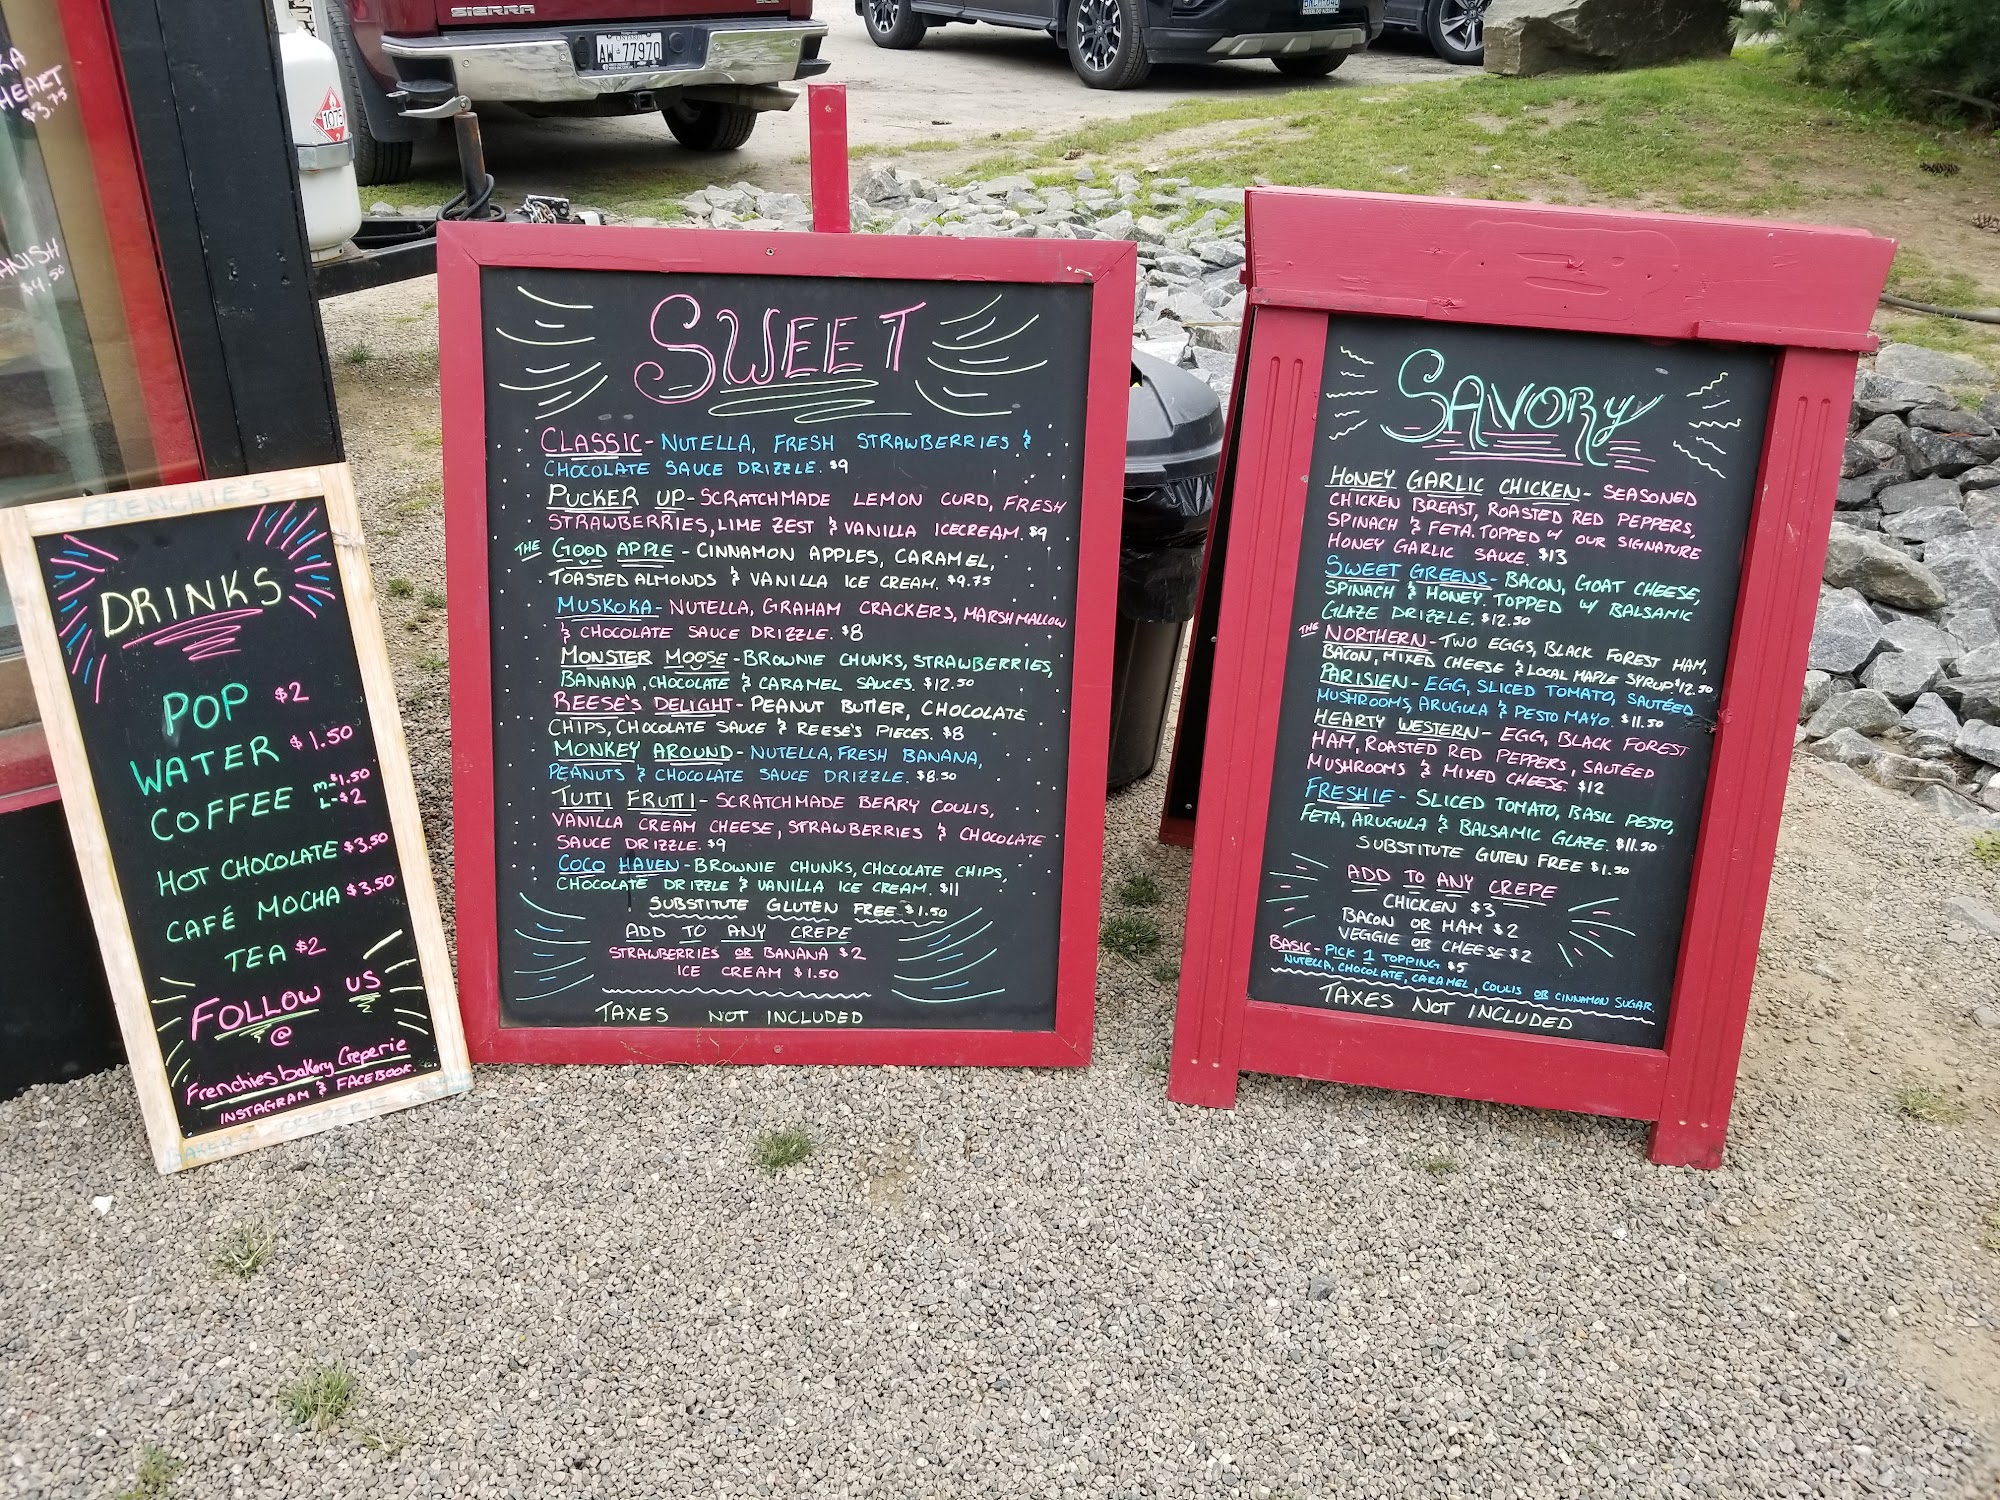 SIERRA
ONTARIO
AW 77970
1075
2
KA
HEART
$3.75
ANISH
$4.50
FRENCHIE'S
DRINKS
POP $2
WATER $1.50
COFFEE M-$1.50
L-$2
HOT CHOCOLATE $3.50
CAFÉ MOCHA $3.50
TEA $2
FOLLOW US
@
Frenchies bakery Creperie
INSTAGRAM & FACEBOOK.
BAKERY CREPERIE
SWEET
CLASSIC- NUTELLA, FRESH STRAWBERRIES &
CHOCOLATE SAUCE DRIZZLE. $9
PUCKER UP- SCRATCHMADE LEMON CURD, FRESH
STRAWBERRIES, LIME ZEST & VANILLA ICECREAM. $9
THE GOOD APPLE - CINNAMON APPLES, CARAMEL,
TOASTED ALMONDS & VANILLA ICE CREAM. $9.75
MUSKOKA- NUTELLA, GRAHAM CRACKERS, MARSHMALLOW
& CHOCOLATE SAUCE DRIZZLE. $8
MONSTER MOOSE- BROWNIE CHUNKS, STRAWBERRIES,
BANANA, CHOCOLATE & CARAMEL SAUCES. $12.50
REESE'S DELIGHT- PEANUT BUTTER, CHOCOLATE
CHIPS, CHOCOLATE SAUCE & REESE'S PIECES. $8
MONKEY AROUND- NUTELLA, FRESH BANANA,
PEANUTS & CHOCOLATE SAUCE DRIZZLE. $8.50
TUTTI FRUTTI- SCRATCHMADE BERRY COULIS,
VANILLA CREAM CHEESE, STRAWBERRIES & CHOCOLATE
SAUCE DRIZZLE. $9
COCO HAVEN- BROWNIE CHUNKS, CHOCOLATE CHIPS,
CHOCOLATE DRIZZLE & VANILLA ICE CREAM. $11
SUBSTITUTE GLUTEN FREE $1.50
ADD TO ANY CREPE
STRAWBERRIES OR BANANA $2
ICE CREAM $1.50
TAXES NOT INCLUDED
SAVORY
HONEY GARLIC CHICKEN- SEASONED
CHICKEN BREAST, ROASTED RED PEPPERS,
SPINACH & FETA. TOPPED W/ OUR SIGNATURE
HONEY GARLIC SAUCE. $13
SWEET GREENS- BACON, GOAT CHEESE,
SPINACH & HONEY. TOPPED W/ BALSAMIC
GLAZE DRIZZLE. $12.50
THE NORTHERN- TWO EGGS, BLACK FOREST HAM,
BACON, MIXED CHEESE & LOCAL MAPLE SYRUP. $12.50
PARISIEN- EGG, SLICED TOMATO, SAUTÉED
MUSHROOMS, ARUGULA & PESTO MAYO. $11.50
HEARTY WESTERN- EGG, BLACK FOREST
HAM, ROASTED RED PEPPERS, SAUTÉED
MUSHROOMS & MIXED CHEESE. $12
FRESHIE - SLICED TOMATO, BASIL PESTO,
FETA, ARUGULA & BALSAMIC GLAZE. $11.50
SUBSTITUTE GUTEN FREE $1.50
ADD TO ANY CREPE
CHICKEN $3
BACON OR HAM $2
VEGGIE OR CHEESE $2
BASIC- PICK 1 TOPPING $5
NUTELLA, CHOCOLATE, CARAMEL, COULIS OR CINNAMON SUGAR.
TAXES NOT INCLUDED